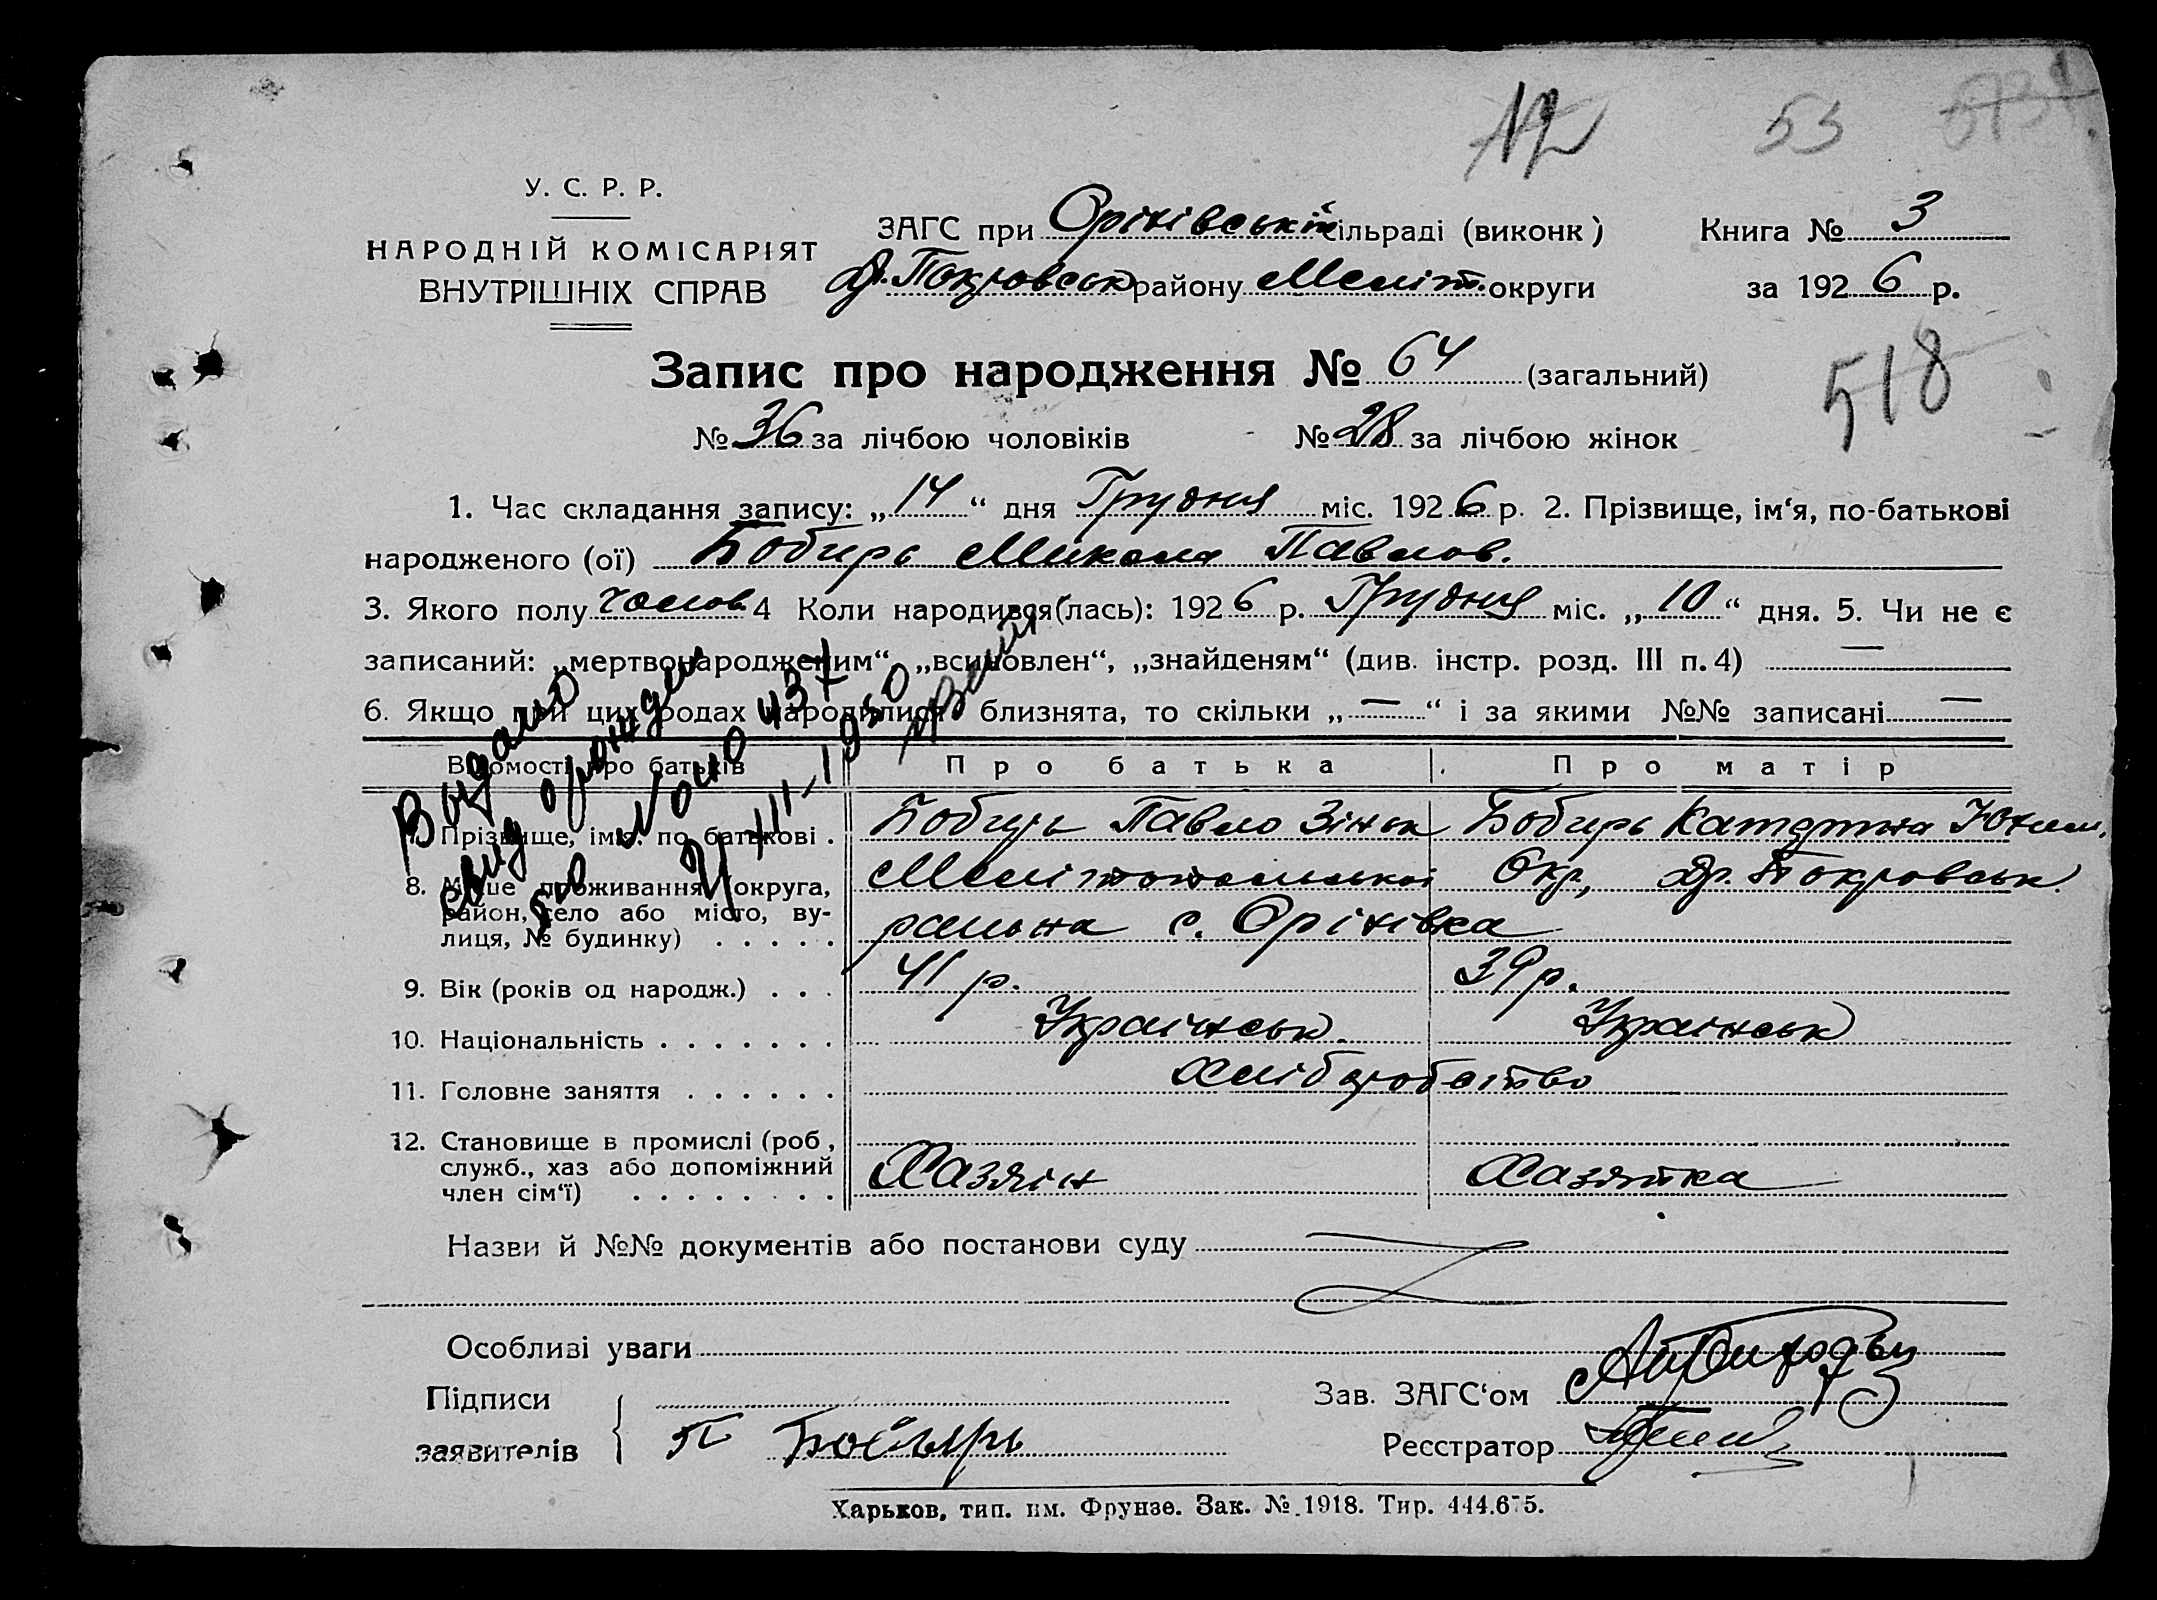 12 53
У. С. Р. Р.
НАРОДНІЙ КОМІСАРІЯТ
ВНУТРІШНІХ СПРАВ
ЗАГС при Оріхівській сільраді (виконк)
Д. Покровськ району Меліт. округи
Книга № 3
за 1926 р.
Запис про народження № 64 (загальний)
518
№ 36 за лічбою чоловіків № 28 за лічбою жінок
1. Час складання запису: „14“ дня Грудня міс. 1926 р. 2. Прізвище, ім‘я, по-батькові
народженого (ої) Бобирь Микола Павлов.
3. Якого полу чолов. 4 Коли народився(лась): 1926 р. Грудня міс. „10“ дня. 5. Чи не є
записаний: „мертвонародженим“, „всиновлен“, „знайденям“ (див. інстр. розд. III п. 4) —
6. Якщо при цих родах народилися близнята, то скільки „—“ і за якими №№ записані —
Відомості про батьків Про батька Про матір
7. Прізвище, імя, по батькові . Бобирь Павло Зінов Бобирь Катерина Юхим.
8. Місце проживання (округа, Мелітопольської Окр, Др. Покровськ
район, село або місто, ву- району с. Оріхівка
лиця, № будинку) . . . . .
9. Вік (років од народж.) . . . 41 р. 39 р.
10. Національність . . . . . . . Українськ. Українськ
11. Головне заняття . . . . . . Хліборобство
12. Становище в промислі (роб,
служб., хаз або допоміжний Хазяїн Хазяйка
член сім‘ї) . . . . . . . .
Выдано
свид о рожден
Назви й №№ документів або постанови суду
Особливі уваги
Підписи
заявителів П Бобырь
Зав. ЗАГС‘ом
Реєстратор
Харьков, тип. им. Фрунзе. Зак. № 1918. Тир. 444.675.